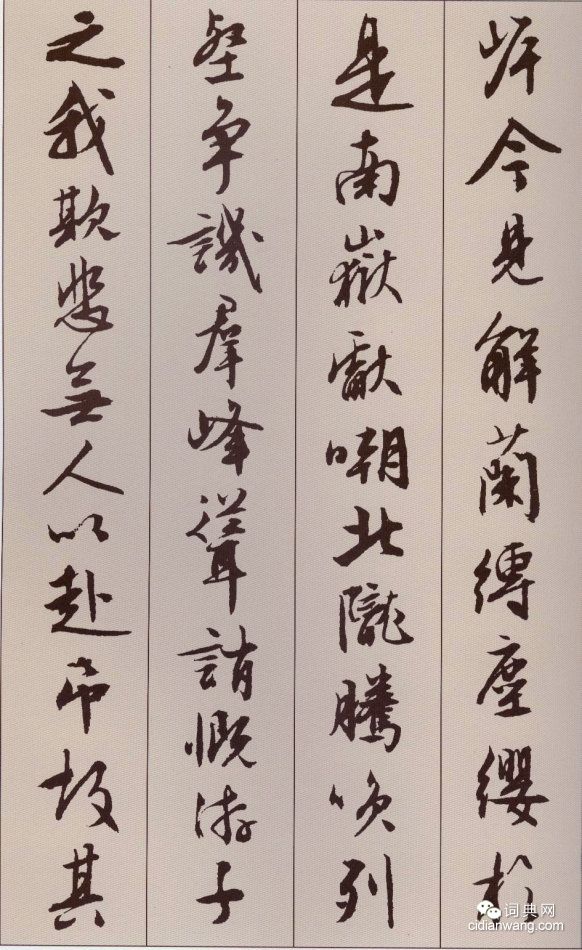 岸今見解蘭縛塵纓於
是南嶽獻嘲北隴騰咲列
壑争譏羣峰聳誚慨游子
之我欺悲無人以赴吊故其
词典网
cidianwang.com